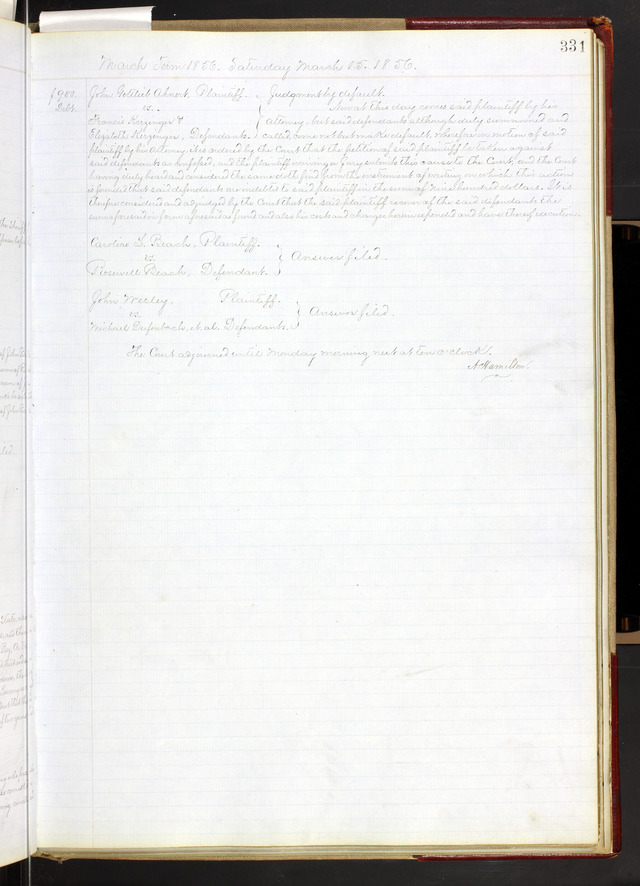 331
March Term 1856. Saturday March 15. 1856.
$900. John Gottlieb Ahnert. Plaintiff. Judgment by default.
Debt. vs. Now at this day comes said plaintiff by his
Francis Kerzinger & attorney, but said defendants although duly summoned and
Elizabeth Kerzinger, Defendants. called come not but make default. Wherefore on motion of said
plaintiff by his Attorney it is ordered by the Court that the petition of said plaintiff be taken against
said defendants as confessed, and the plaintiff waiving a Jury submits this cause to the Court, and the Court
having duly heard and considered the same doth find from the instrument of writing on which this action
is founded that said defendants are indebted to said plaintiff in the sum of Nine hundred dollars. It is
therefore considered and adjudged by the Court that the said plaintiff recover of the said defendants the
sum aforesaid in form aforesaid as found and also his costs and charges herein expended and have thereof execution.
Caroline L. Beach, Plaintiff.
vs. Answer filed.
Rosewell Beach, Defendant.
John Wesley. Plaintiff.
vs. Answer filed.
Michael et. al. Defendants.
The Court adjourned until Monday morning next at ten o'clock.
A. Hamilton.